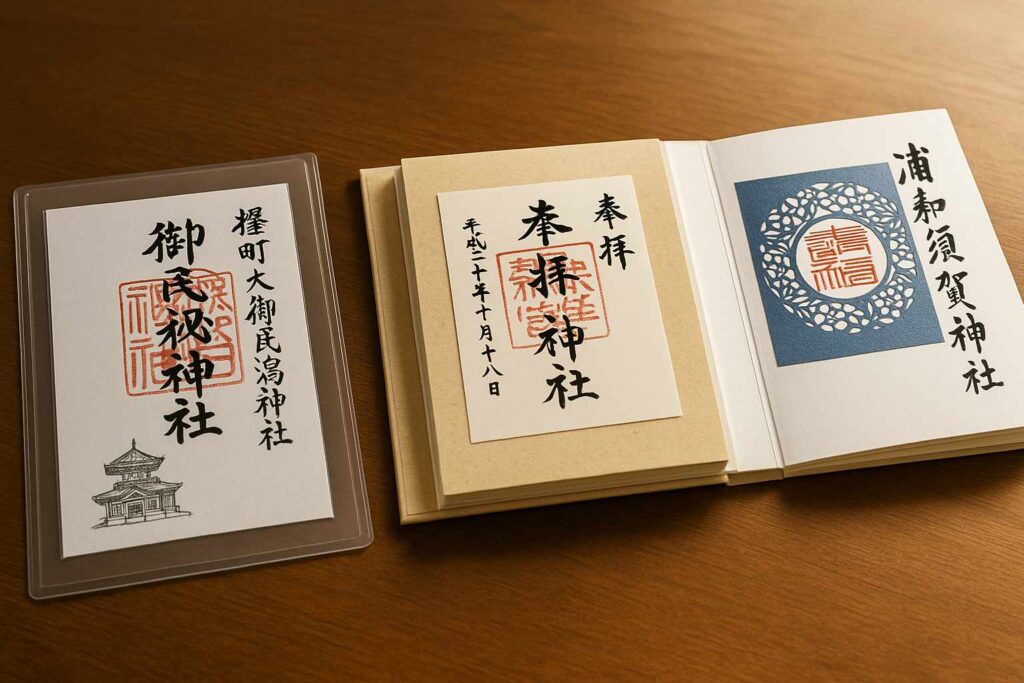 御民祕神社
町大御民潟神社
奉拝
奉拝神社
平成二十年十月十八日
浦和須賀神社